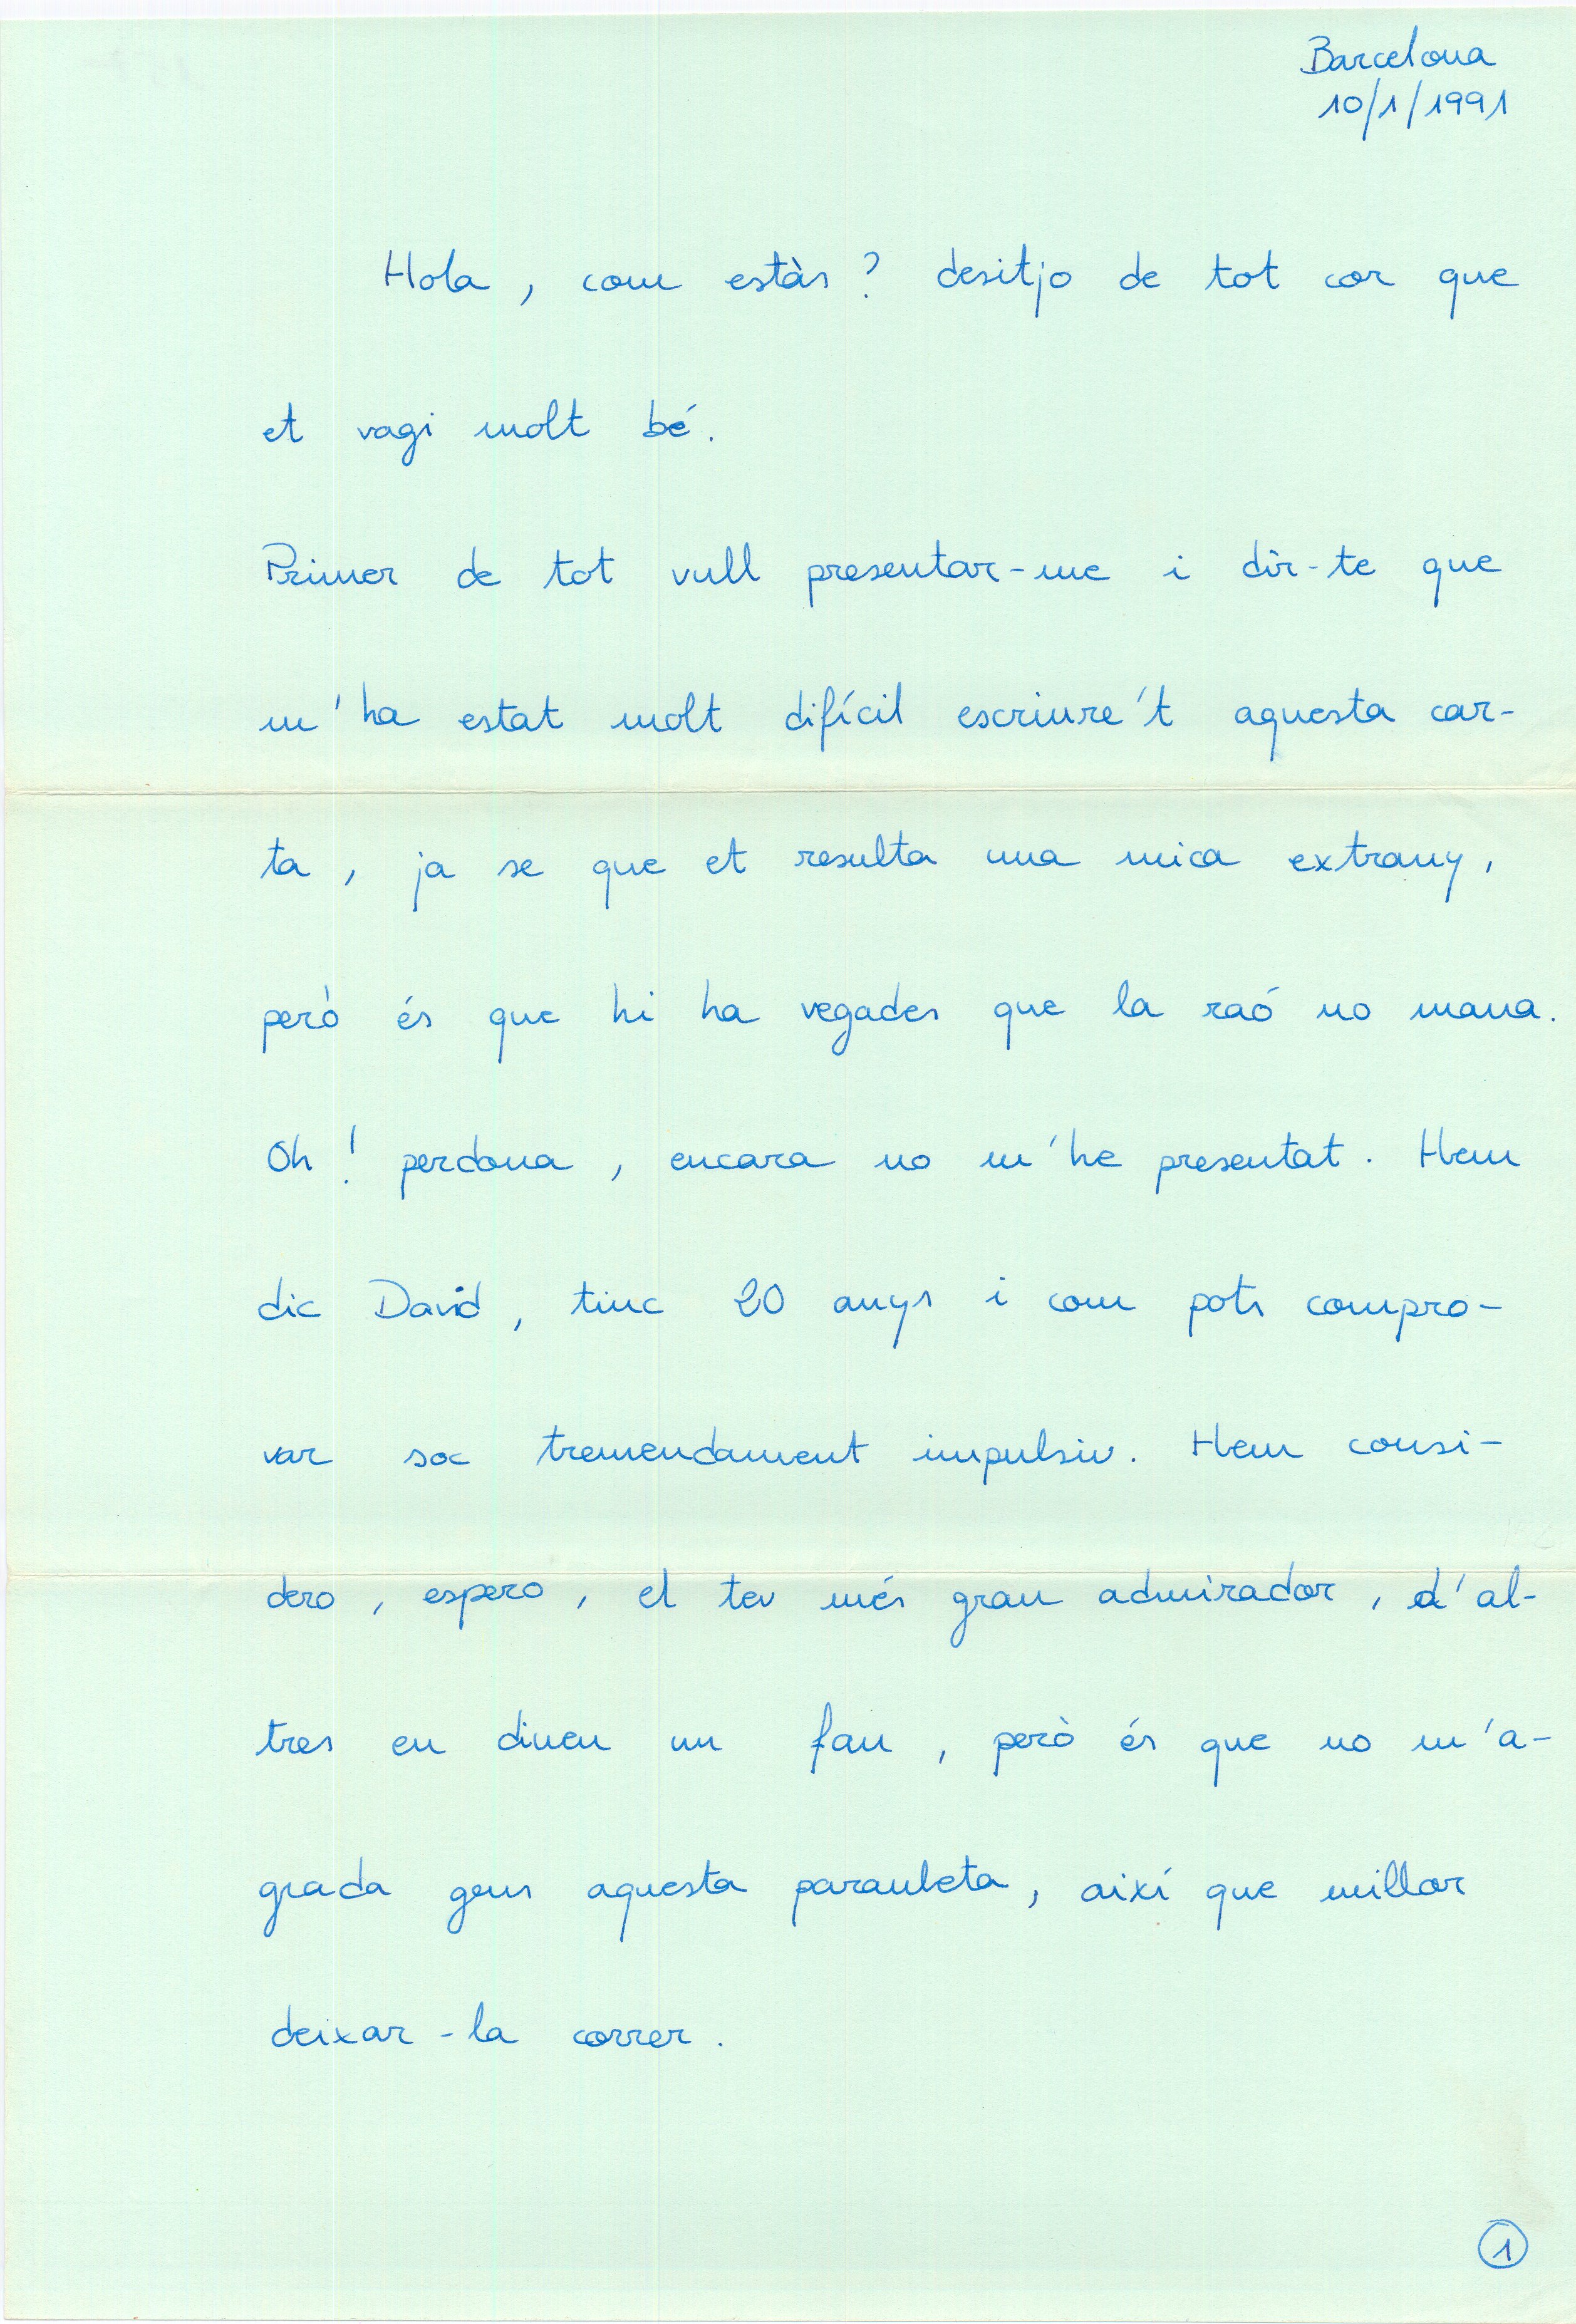 Barcelona
10/1/1991
Hola, com estàs? desitjo de tot cor que
et vagi molt bé.
Primer de tot vull presentar-me i dir-te que
m'ha estat molt difícil escriure't aquesta car-
ta, ja se que et resulta una mica extrany,
però és que hi ha vegades que la raó no mana.
Oh! perdona, encara no m'he presentat. Hem
dic David, tinc 20 anys i com pots compro-
var soc tremendament impulsiu. Hem consi-
dero, espero, el teu més gran admirador, d'al-
tres en diuen un fan, però és que no m'a-
grada gens aquesta parauleta, així que millor
deixar-la correr.
1